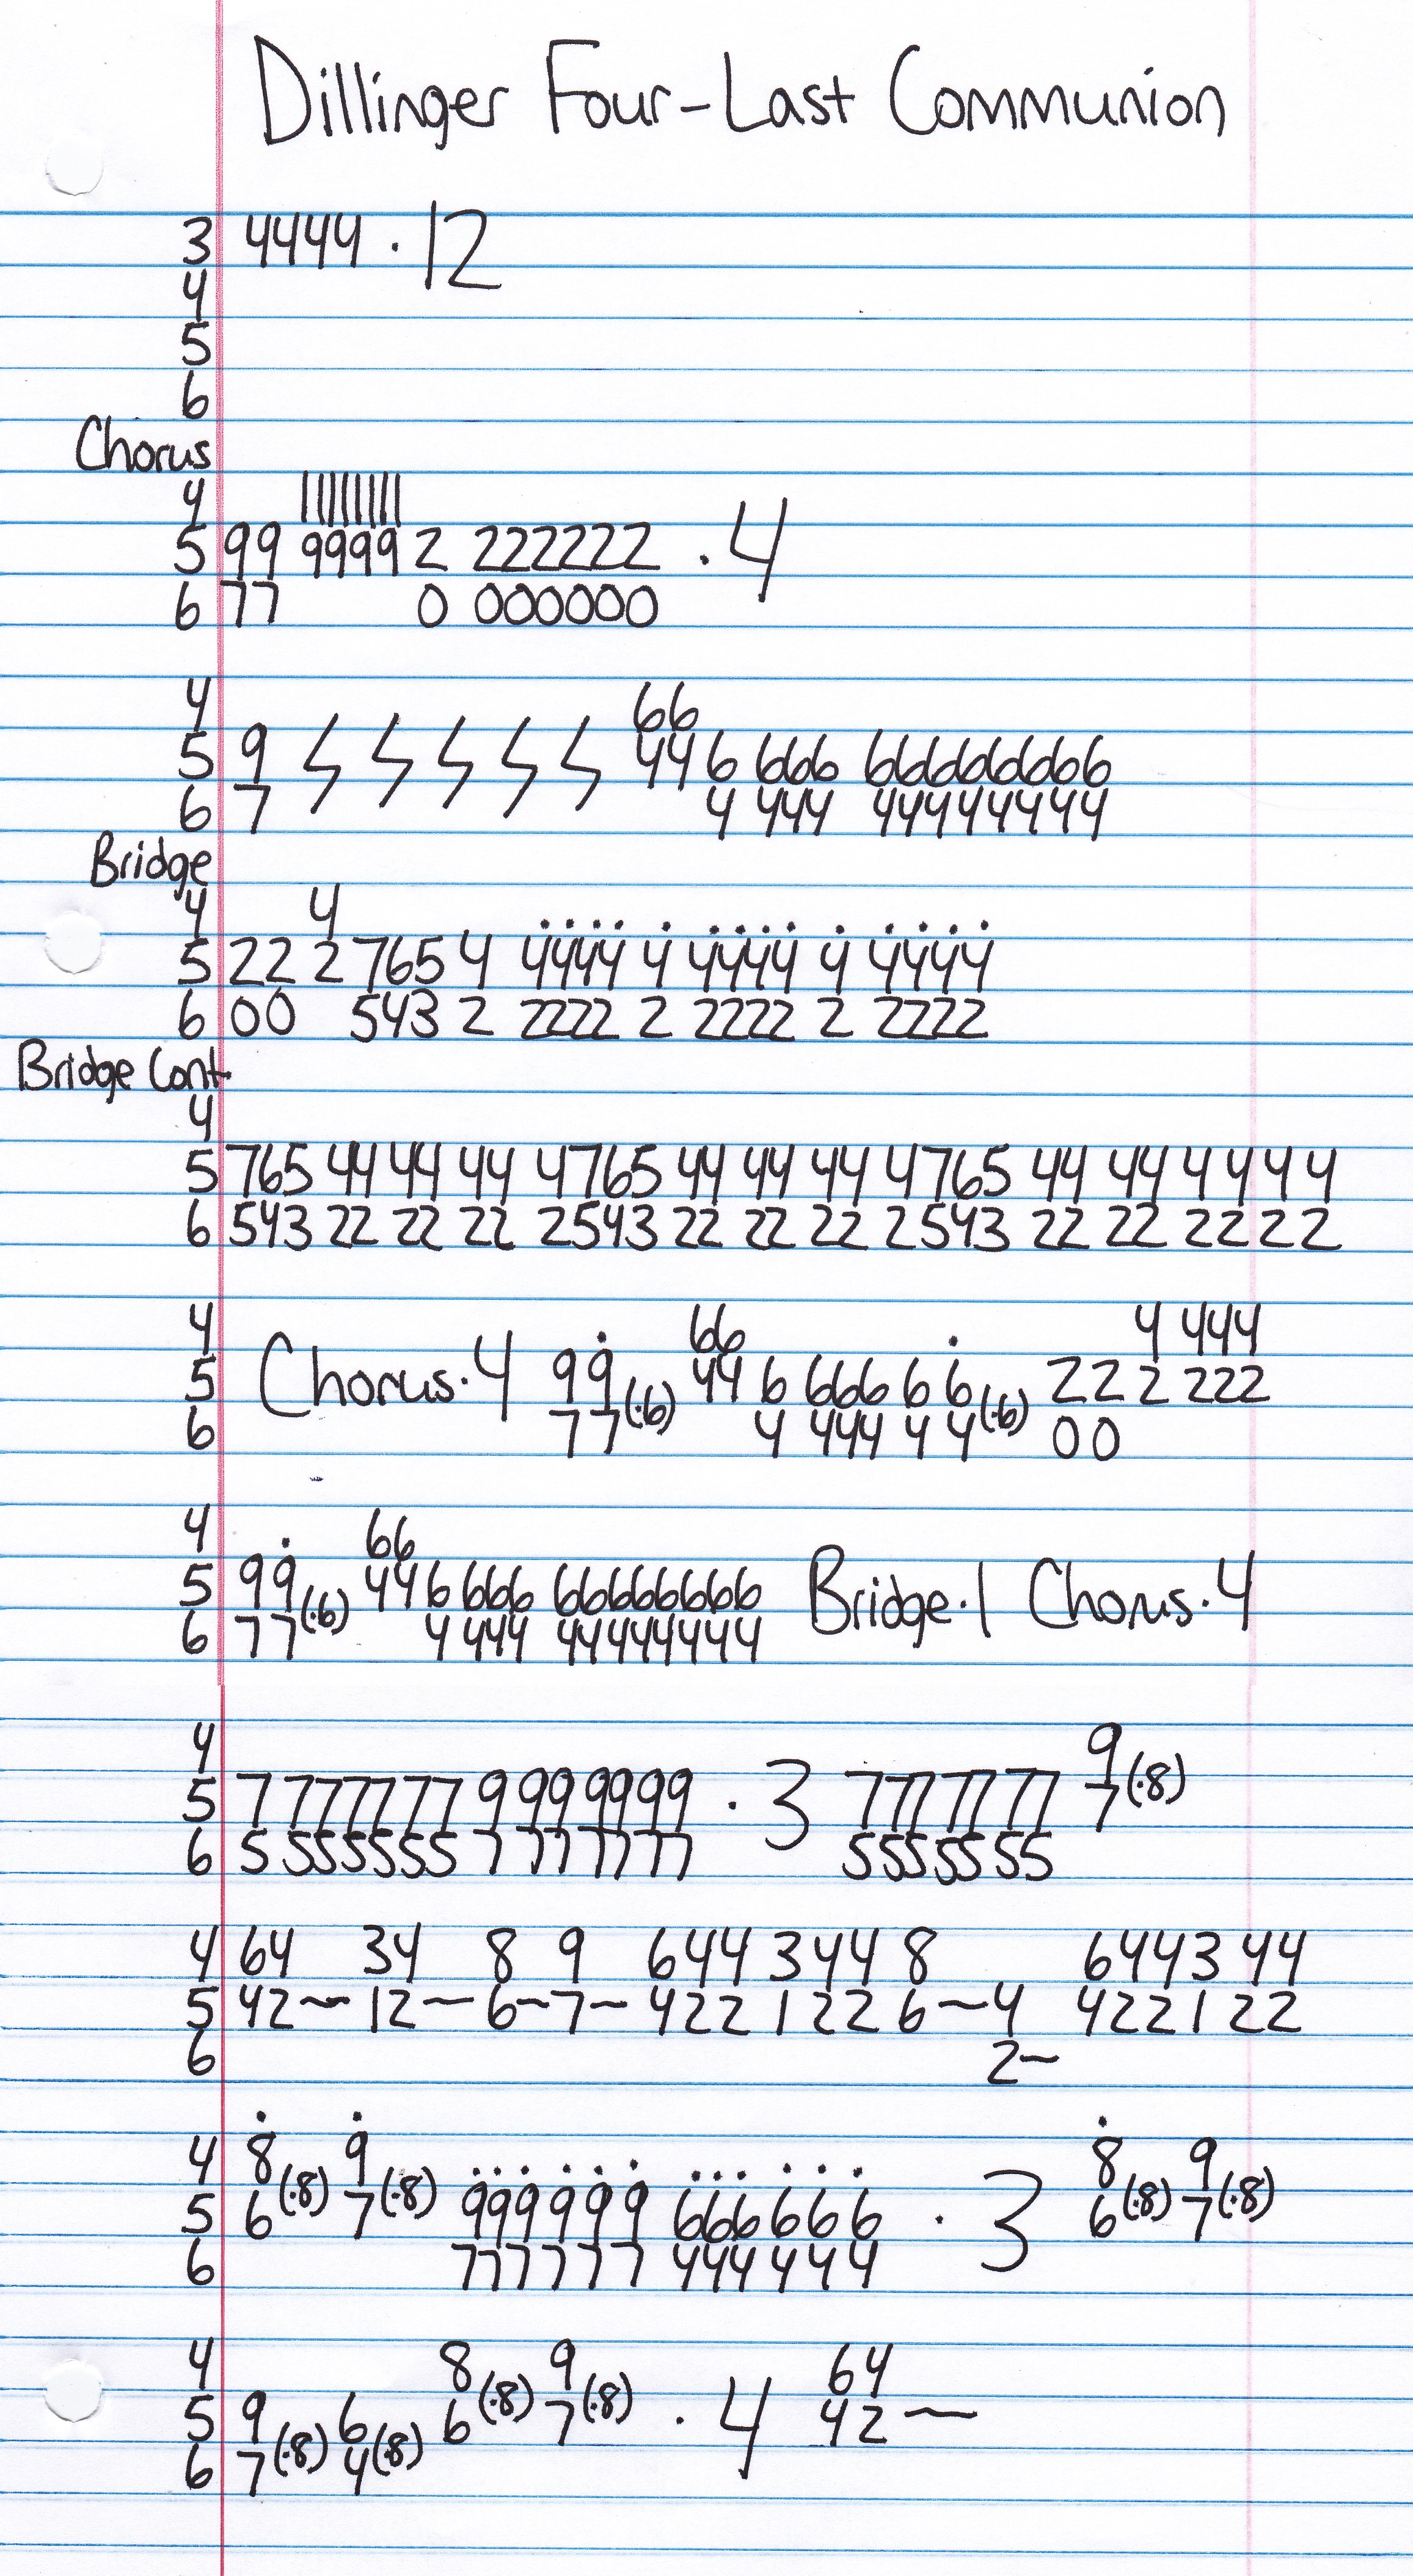 Dillinger Four-Last Communion
3 4444 · 12
4
5
6
Chorus
4 ||||||||
5 99 9999 2 222222 · 4
6 77 0 000000
4 66
5 9 44 6 666 66666666
6 7 4 444 44444444
Bridge
4 4
5 22 2 765 4 4444 4 4444 4 4444
6 00 543 2 2222 2 2222 2 2222
Bridge Cont
4
5 765 44 44 44 4765 44 44 44 4765 44 44 4 4 4 4
6 543 22 22 22 2543 22 22 22 2543 22 22 22 2 2
4 66 4 444
5 Chorus·4 99 (·6) 44 6 666 6 6 (·6) 22 2 222
6 77 4 444 4 4 00
4 66
5 99 (·6) 446 666 66666666 Bridge·1 Chorus·4
6 77 4 444 44444444
4 9
5 7 777777 9 999999 · 3 777777 7 (·8)
6 5 555555 7 777777 555555
4 64 34 8 9 644 344 8 6443 44
5 42~ 12~ 6~7~ 422 122 6~4 4221 22
6 2~
4 8 (·8) 9 (·8) 8 (·8) 9 (·8)
5 6 7 999999 666666 · 3 6 7
6 777777 444444
4 8 (·8) 9 (·8) 64
5 9 (·8) 6 (·8) 6 7 · 4 42~
6 7 4